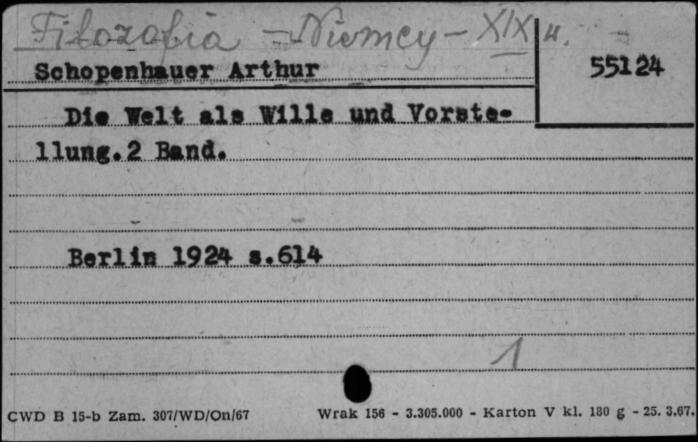 Filozofia - Niemcy - XIX w.
Schopenhauer Arthur
55124
Die Welt als Wille und Vorste-
llung.2 Band.
Berlin 1924 s.614
1
CWD B 15-b Zam. 307/WD/On/67 Wrak 156 - 3.305.000 - Karton V kl. 180 g - 25. 3.67.